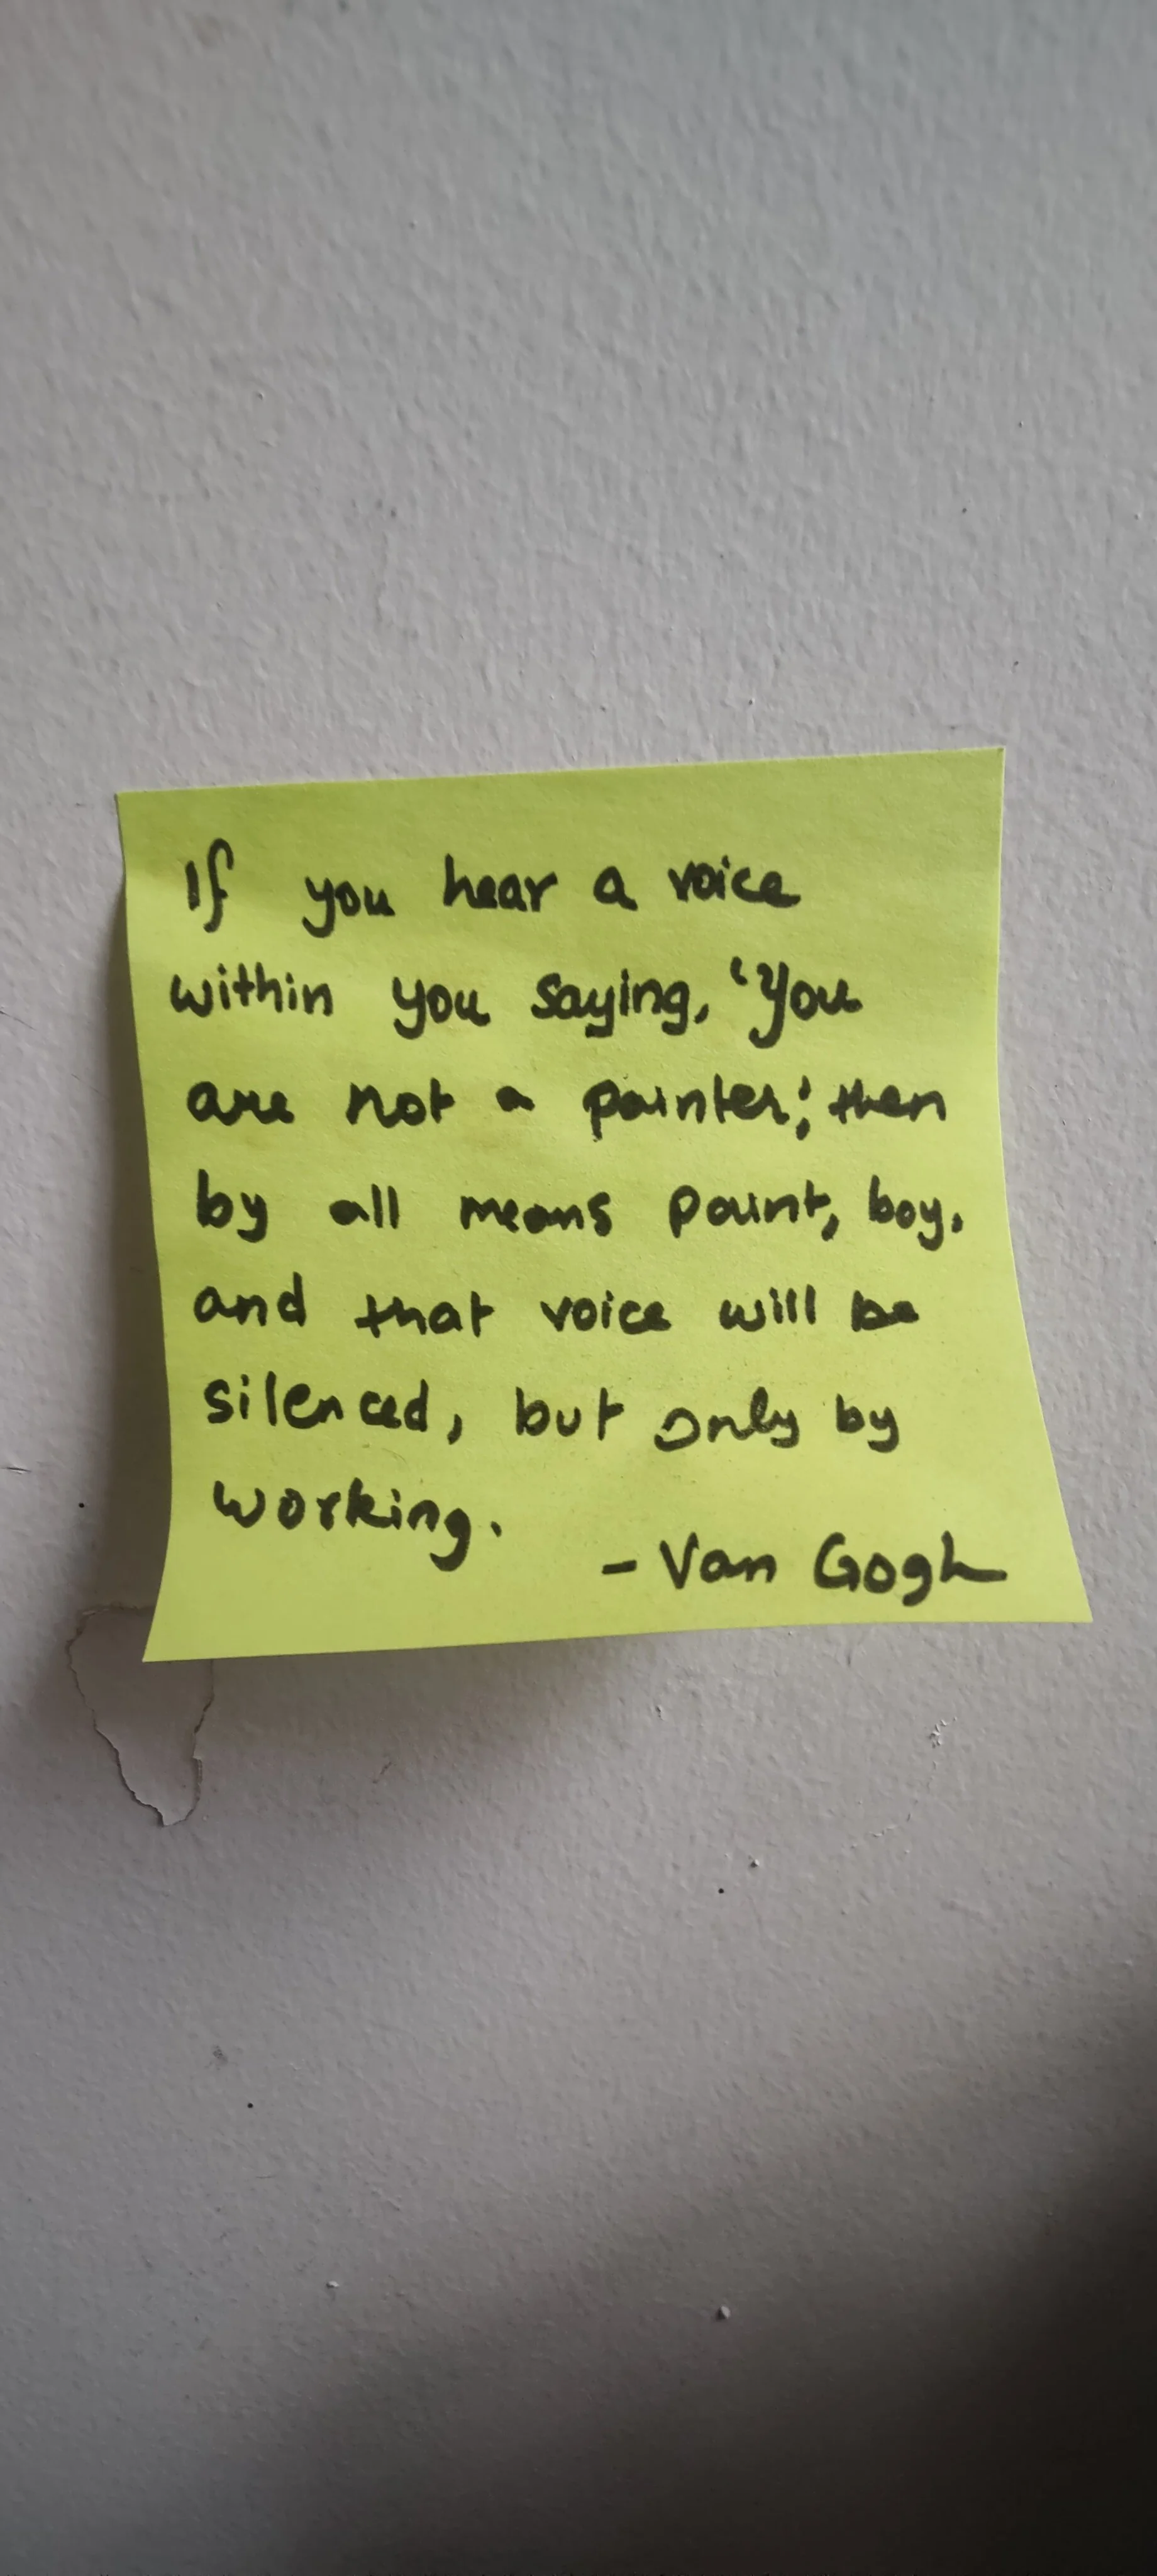 If you hear a voice
within you saying, 'You
are not a painter,' then
by all means paint, boy,
and that voice will be
silenced, but only by
working.
- Van Gogh